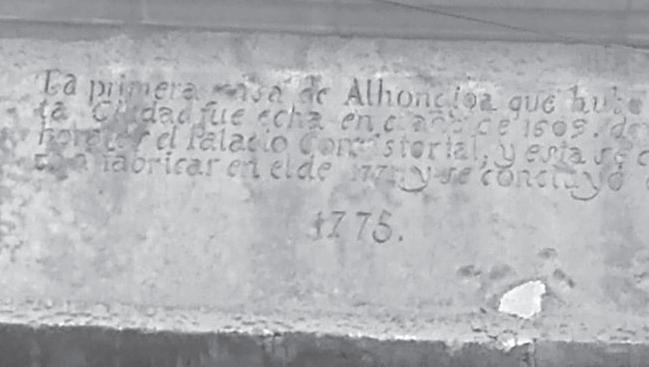 La primera casa de Alhondiga que hubo
ta Ciudad fue echa en el año de 1609. de
el Palacio Consistorial, y esta se c
a fabricar en el de y se concluyó
1775.